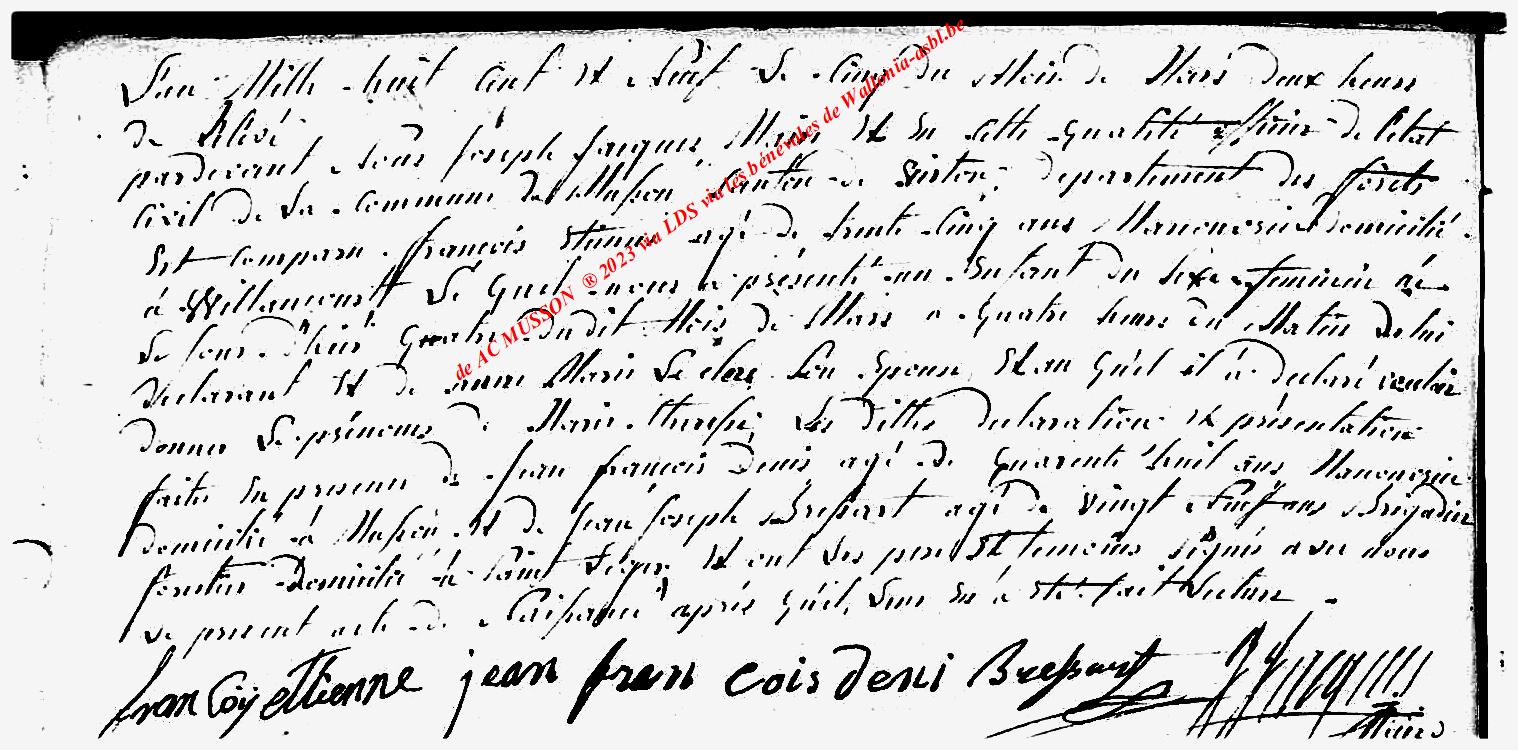 L'an Mille huit Cent et Neuf Le Cinq du Mois de Mars deux heures
de Relevé
pardevant Nous Joseph Jacques Maire et en cette qualité officier de l'état
Civil de La Commune de Musson Canton de Virton, departement des forets
Est Comparu françois Etienne agé de trente Cinq ans Manouvrier domicilié
à Willancourt Le quel nous a présenté un Enfant du sexe feminin née
Le jour d'hier quatre dudit Mois de Mars a quatre heures du Matin de lui
declarant et de Marie Le clere Son Epouse, Et au quel il à declaré vouloir
donner Le prénoms de Marie therese Les dittes declaration et présentation
faite En presence de Jean françois Denis agé de quarente huit ans Manouvrier
domicilié à Musson et de Jean Joseph Bressart agé de vingt Neuf ans Brigadier
forestier Domicilié à Saint Leger et ont Les pere Et temoins signés avec nous
Le present acte de Naissance après qu'il Leur En à Eté fait Lecture
franCoij ettienne jean fran Cois deni Bressart JJacques
Maire
de AC MUSSON ® 2023 via LDS via les bénévoles de Wallonia-asbl.be